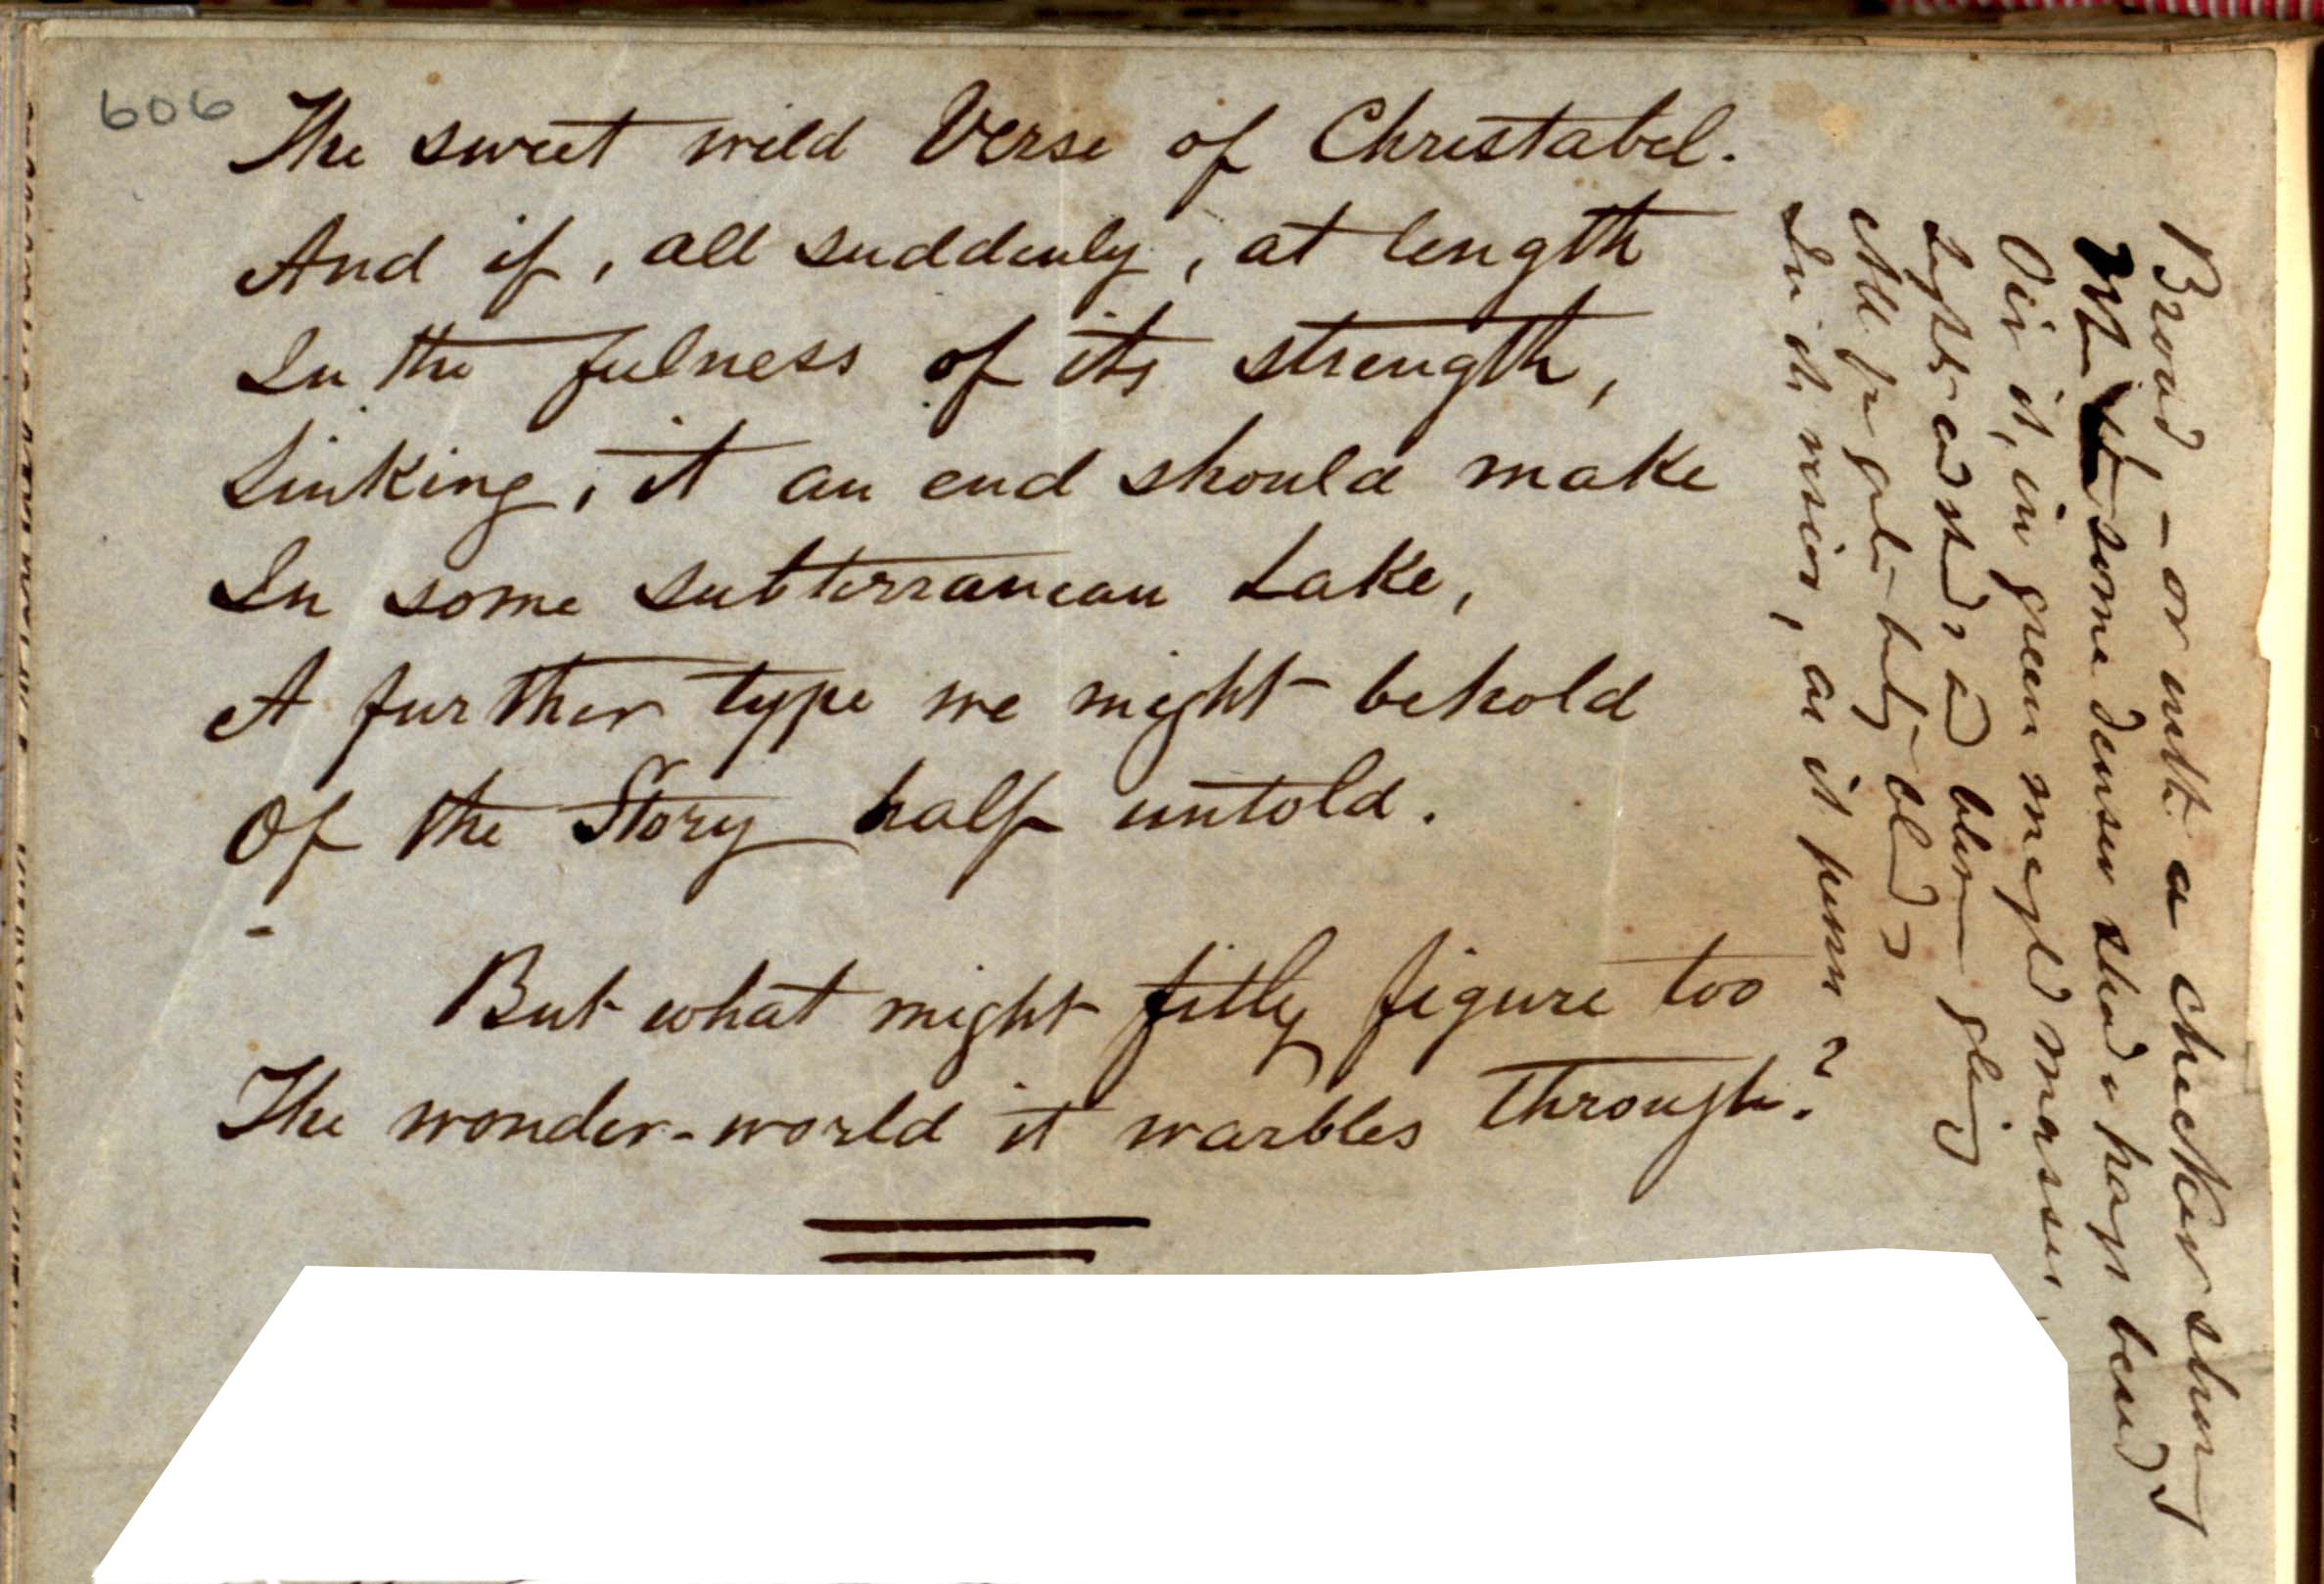 606
The sweet wild Verse of Christabel.
And if, all suddenly, at length
In the fulness of its strength,
Sinking, it an end should make
In some subterranean Lake,
A further type we might behold
Of the Story half untold.
But what might fitly figure too
The wonder-world it warbles through.
Broad, – or with a checker
some denser
O'er it, in green masses
Light and bloom
All
In its , as it ?